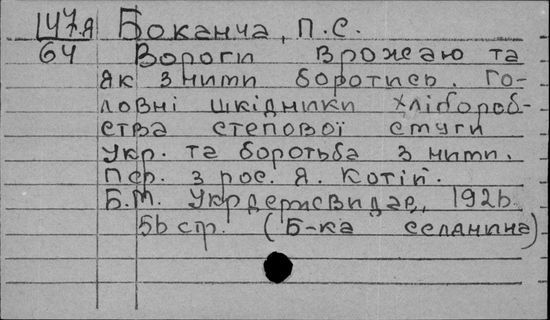 147я Боканча, П.С.
64 Вороги врожаю та
як з ними боротись. Го-
ловні шкідники хлібороб-
ства степової смуги
Укр. та боротьба з ними.
Пер. з рос. Я. Котій.
Б.М. Укрдержвидав, 1926.
56 стр. (Б-ка селянина)